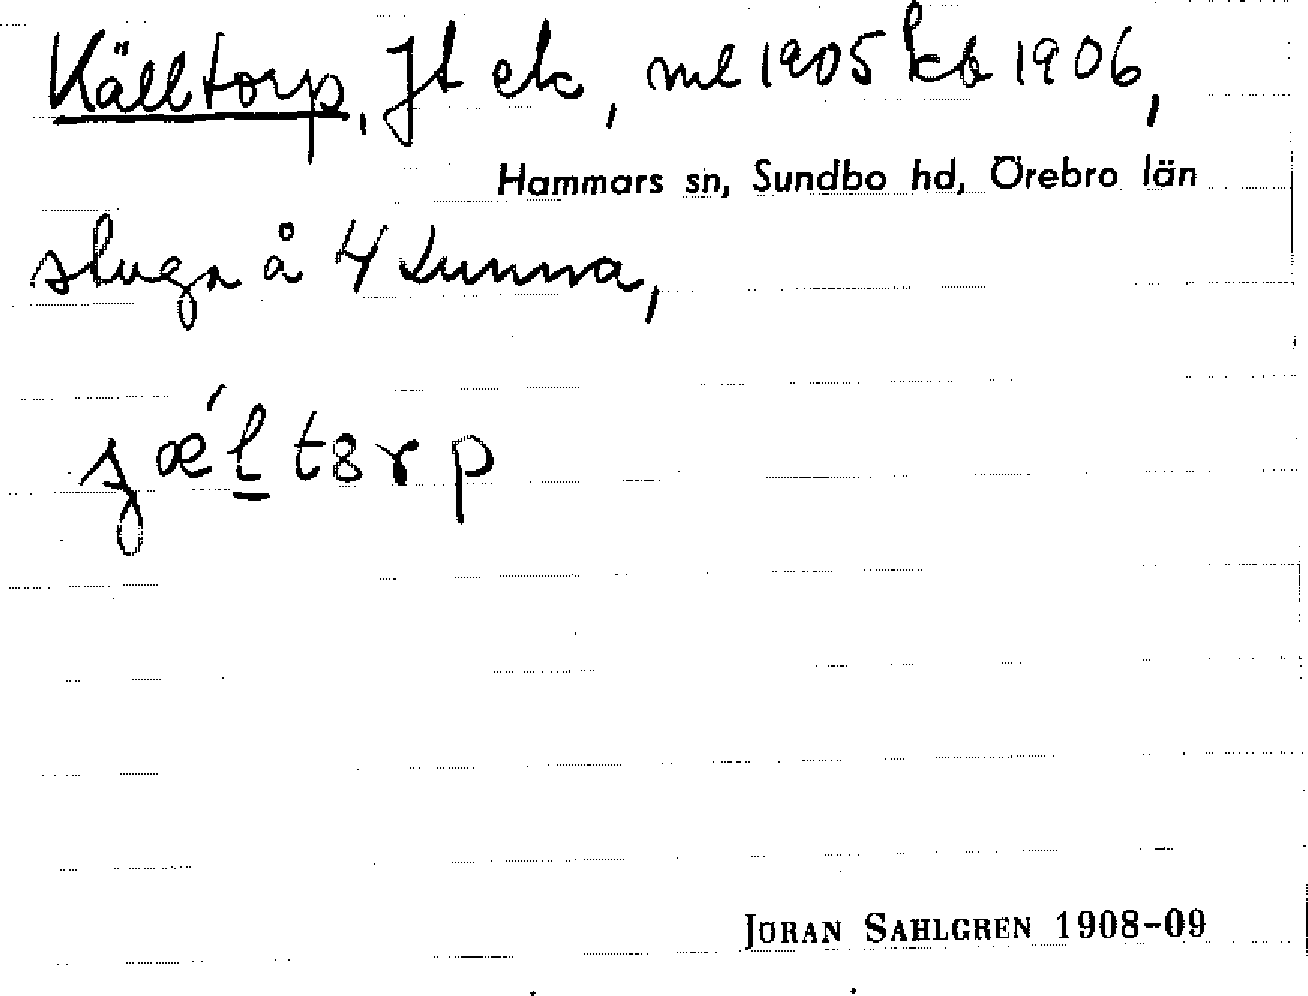 Källtorp, Jt ek, ml 1905 kb 1906,
Hammars sn, Sundbo hd, Örebro län
stuga å 4 Tunna,
ʂǽl̠tɞrp
JÖRAN SAHLGREN 1908-09